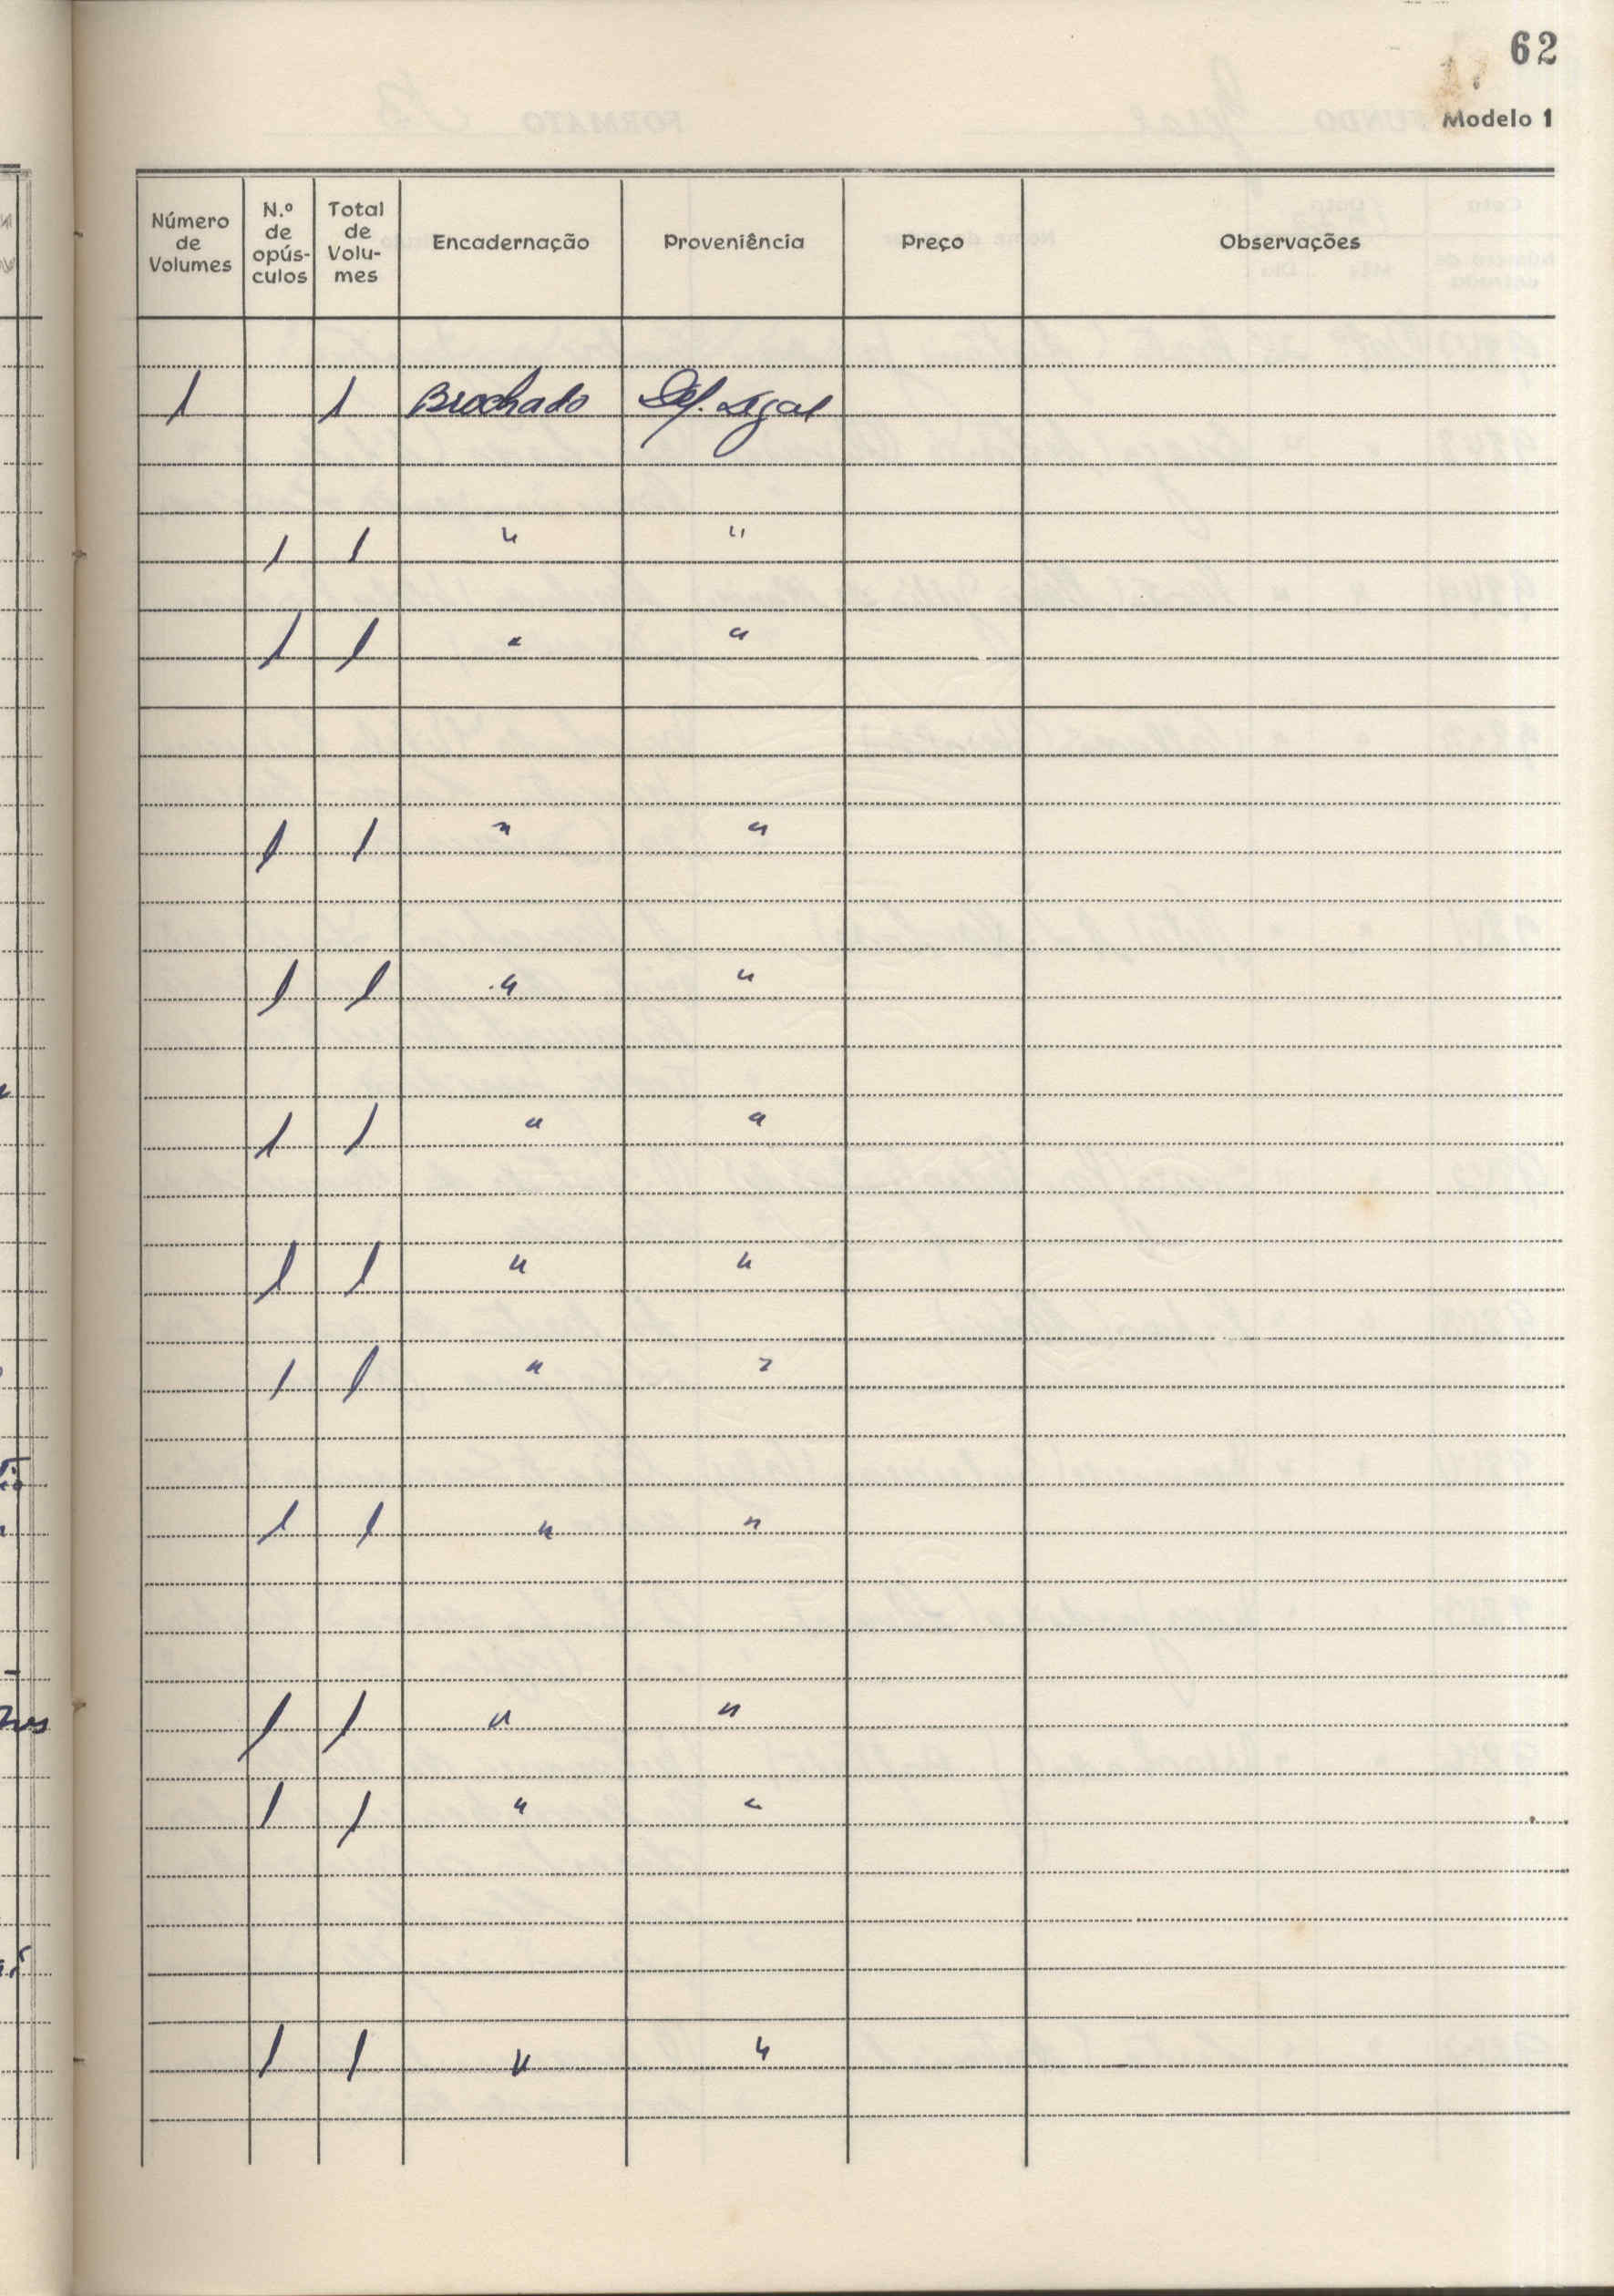 62
Modelo 1
Número de Volumes | N.º de opús-culos | Total de Volu-mes | Encadernação | Proveniência | Preço | Observações
1 | | 1 | Brochado | Dep. Legal
| 1 | 1 | " | "
| 1 | 1 | " | "
| 1 | 1 | " | "
| 1 | 1 | " | "
| 1 | 1 | " | "
| 1 | 1 | " | "
| 1 | 1 | " | "
| 1 | 1 | " | "
| 1 | 1 | " | "
| 1 | 1 | " | "
| 1 | 1 | " | "